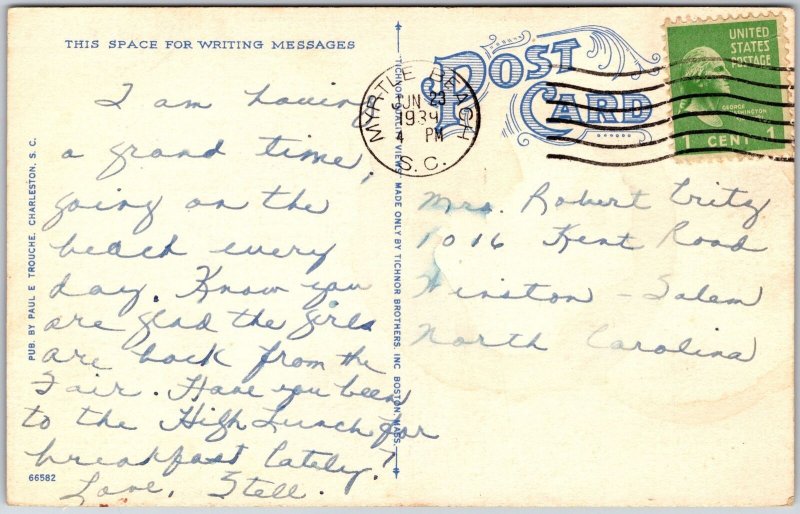 THIS SPACE FOR WRITING MESSAGES
I am having
a grand time,
going on the
beach every
day. Know you
are glad the girls
are back from the
Fair. Have you been
to the High Lunch for
breakfast lately?
Love, Stell.
66582
PUB. BY PAUL E TROUCHE, CHARLESTON, S. C.
MADE ONLY BY TICHNOR BROTHERS, INC BOSTON MASS.
POST
CARD
MYRTLE BEACH
JUN 23
1939
4 PM
S.C.
UNITED
STATES
POSTAGE
GEORGE
WASHINGTON
1 CENT 1
Mrs. Robert
1016 Kent Road
Winston-Salem
North Carolina